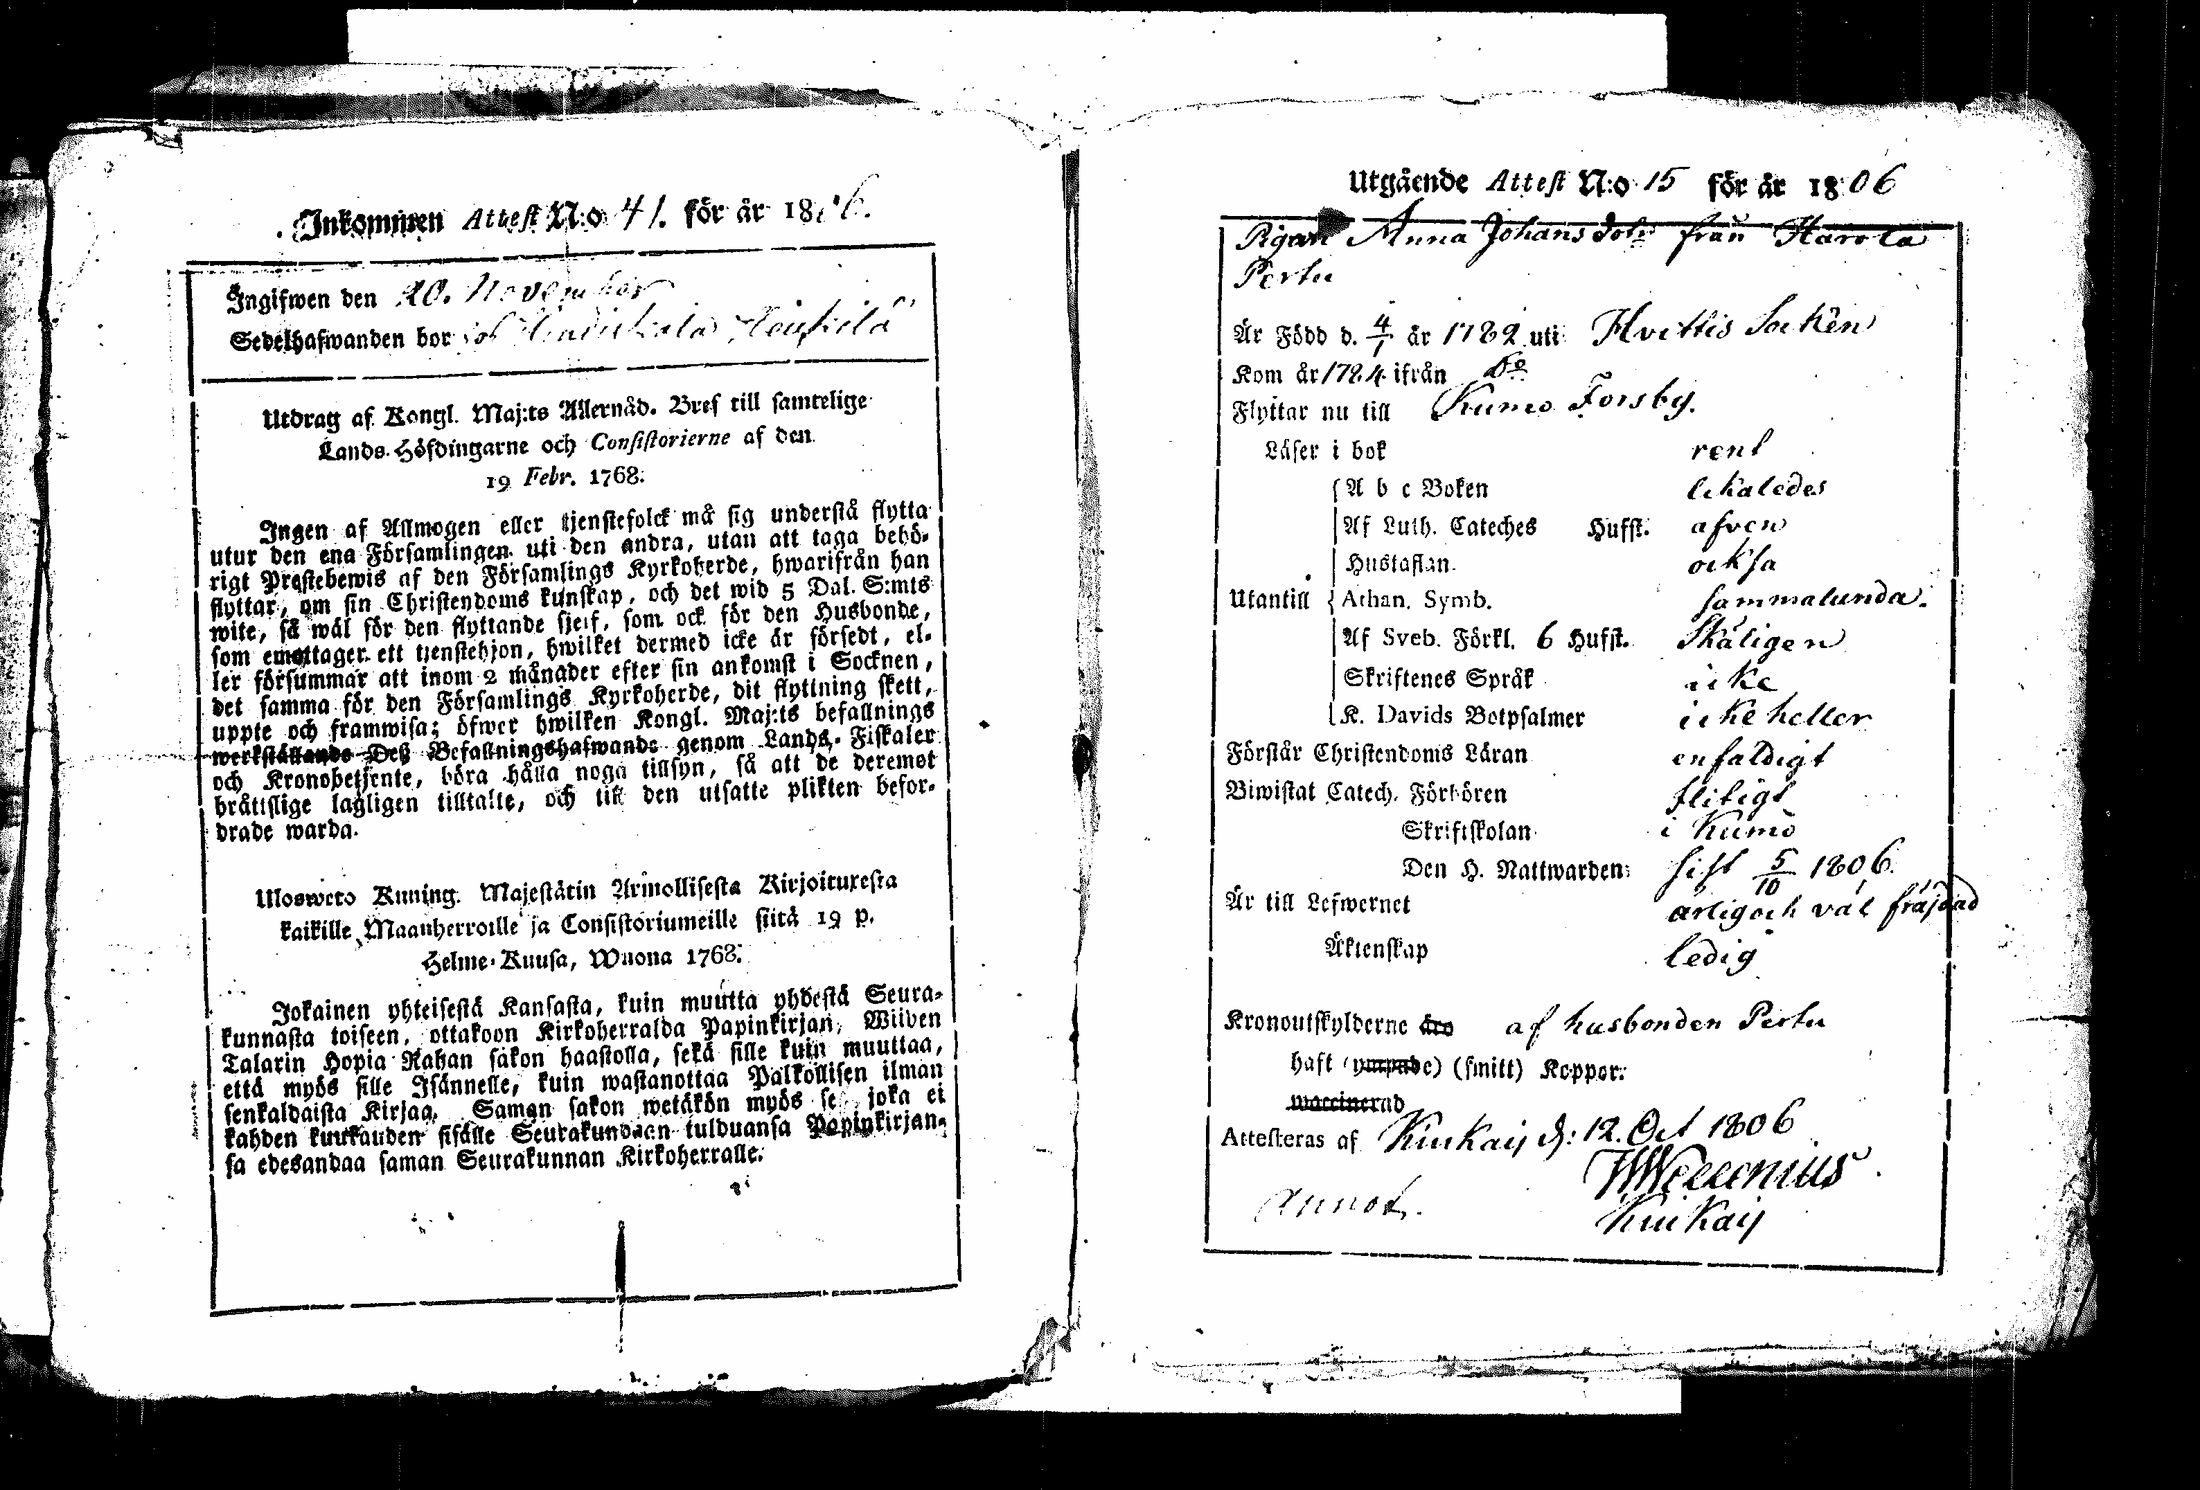 Inkommen Attest N:o 41. för år 1806.
Ingifwen den 20. November
Sedelhafwanden bor
Utdrag af Kongl. Maj:ts Allernåd. Bref till samtelige
Lands-Höfdingarne och Consistorierne af den
19 Febr. 1768.
Ingen af Allmogen eller tjenstefolck må sig understå flytta
utur den ena Församlingen uti den andra, utan att taga behö-
rigt Prestebewis af den Församlings Kyrkoherde, hwarifrån han
flyttar, om sin Christendoms kunskap, och det wid 5 Dal. S:mts
wite, så wäl för den flyttande sjelf, som ock för den Husbonde,
som emottager ett tjenstehjon, hwilket dermed icke är försedt, el-
ler försummar att inom 2 månader efter sin ankomst i Socknen,
det samma för den Församlings Kyrkoherde, dit flyttning skett,
uppte och framwisa; öfwer hwilken Kongl. Maj:ts befallnings
werkställande Deß Befallningshafwande genom Lands-Fiskaler
och Kronobetjente, böra hålla noga tillsyn, så att de deremot
bråttslige lagligen tilltalte, och till den utsatte plikten befor-
drade warda.
Ulosweto Kuning. Majestätin Armollisesta Kirjoituxesta
kaikille Maanherroille ja Consistoriumeille siitä 19 p.
Helme-Kuusa, Wuona 1768.
Jokainen yhteisestä Kansasta, kuin muutta yhdestä Seura-
kunnasta toiseen, ottakoon Kirkoherralda Papinkirjan, Wiiden
Talarin Hopia Rahan sakon haastolla, sekä sille kuin muuttaa,
että myös sille Isännelle, kuin wastanottaa Palkollisen ilman
senkaldaista Kirjaa. Saman sakon wetäkön myös se, joka ei
kahden kuukauden sisälle Seurakundaan tulduansa Papinkirjan-
sa edesandaa saman Seurakunnan Kirkoherralle.
Utgående Attest N:o 15 för år 1806
Pigan Anna Johansdotr från Harola
Pertu
Är Född d. 4/1 år 1782 uti Hvittis Socken
Kom år 1784 ifrån do
Flyttar nu till Kumo Forsby.
Läser i bok rent
A b c Boken likaledes
Af Luth. Cateches Hufst. äfven
Hustaflan. ocksa
Utantill Athan. Symb. sammalunda.
Af Sveb. Förkl. 6 Hufst. Skäligen
Skriftenes Språk icke
K. Davids Botpsalmer icke heller
Förstår Christendoms Läran enfaldigt
Biwistat Catech. Förhören flitigt
Skriftskolan i Kumo
Den H. Nattwarden: sist 5/10 1806.
Är till Lefwernet ärlig och väl fräjdad
Äktenskap ledig
Kronoutskylderne äro af husbonden Pertu
haft (ympade) (smitt) Koppor:
waccinerad
Attesteras af Kiukais d: 12. Oct 1806
Kiukais
Annot.